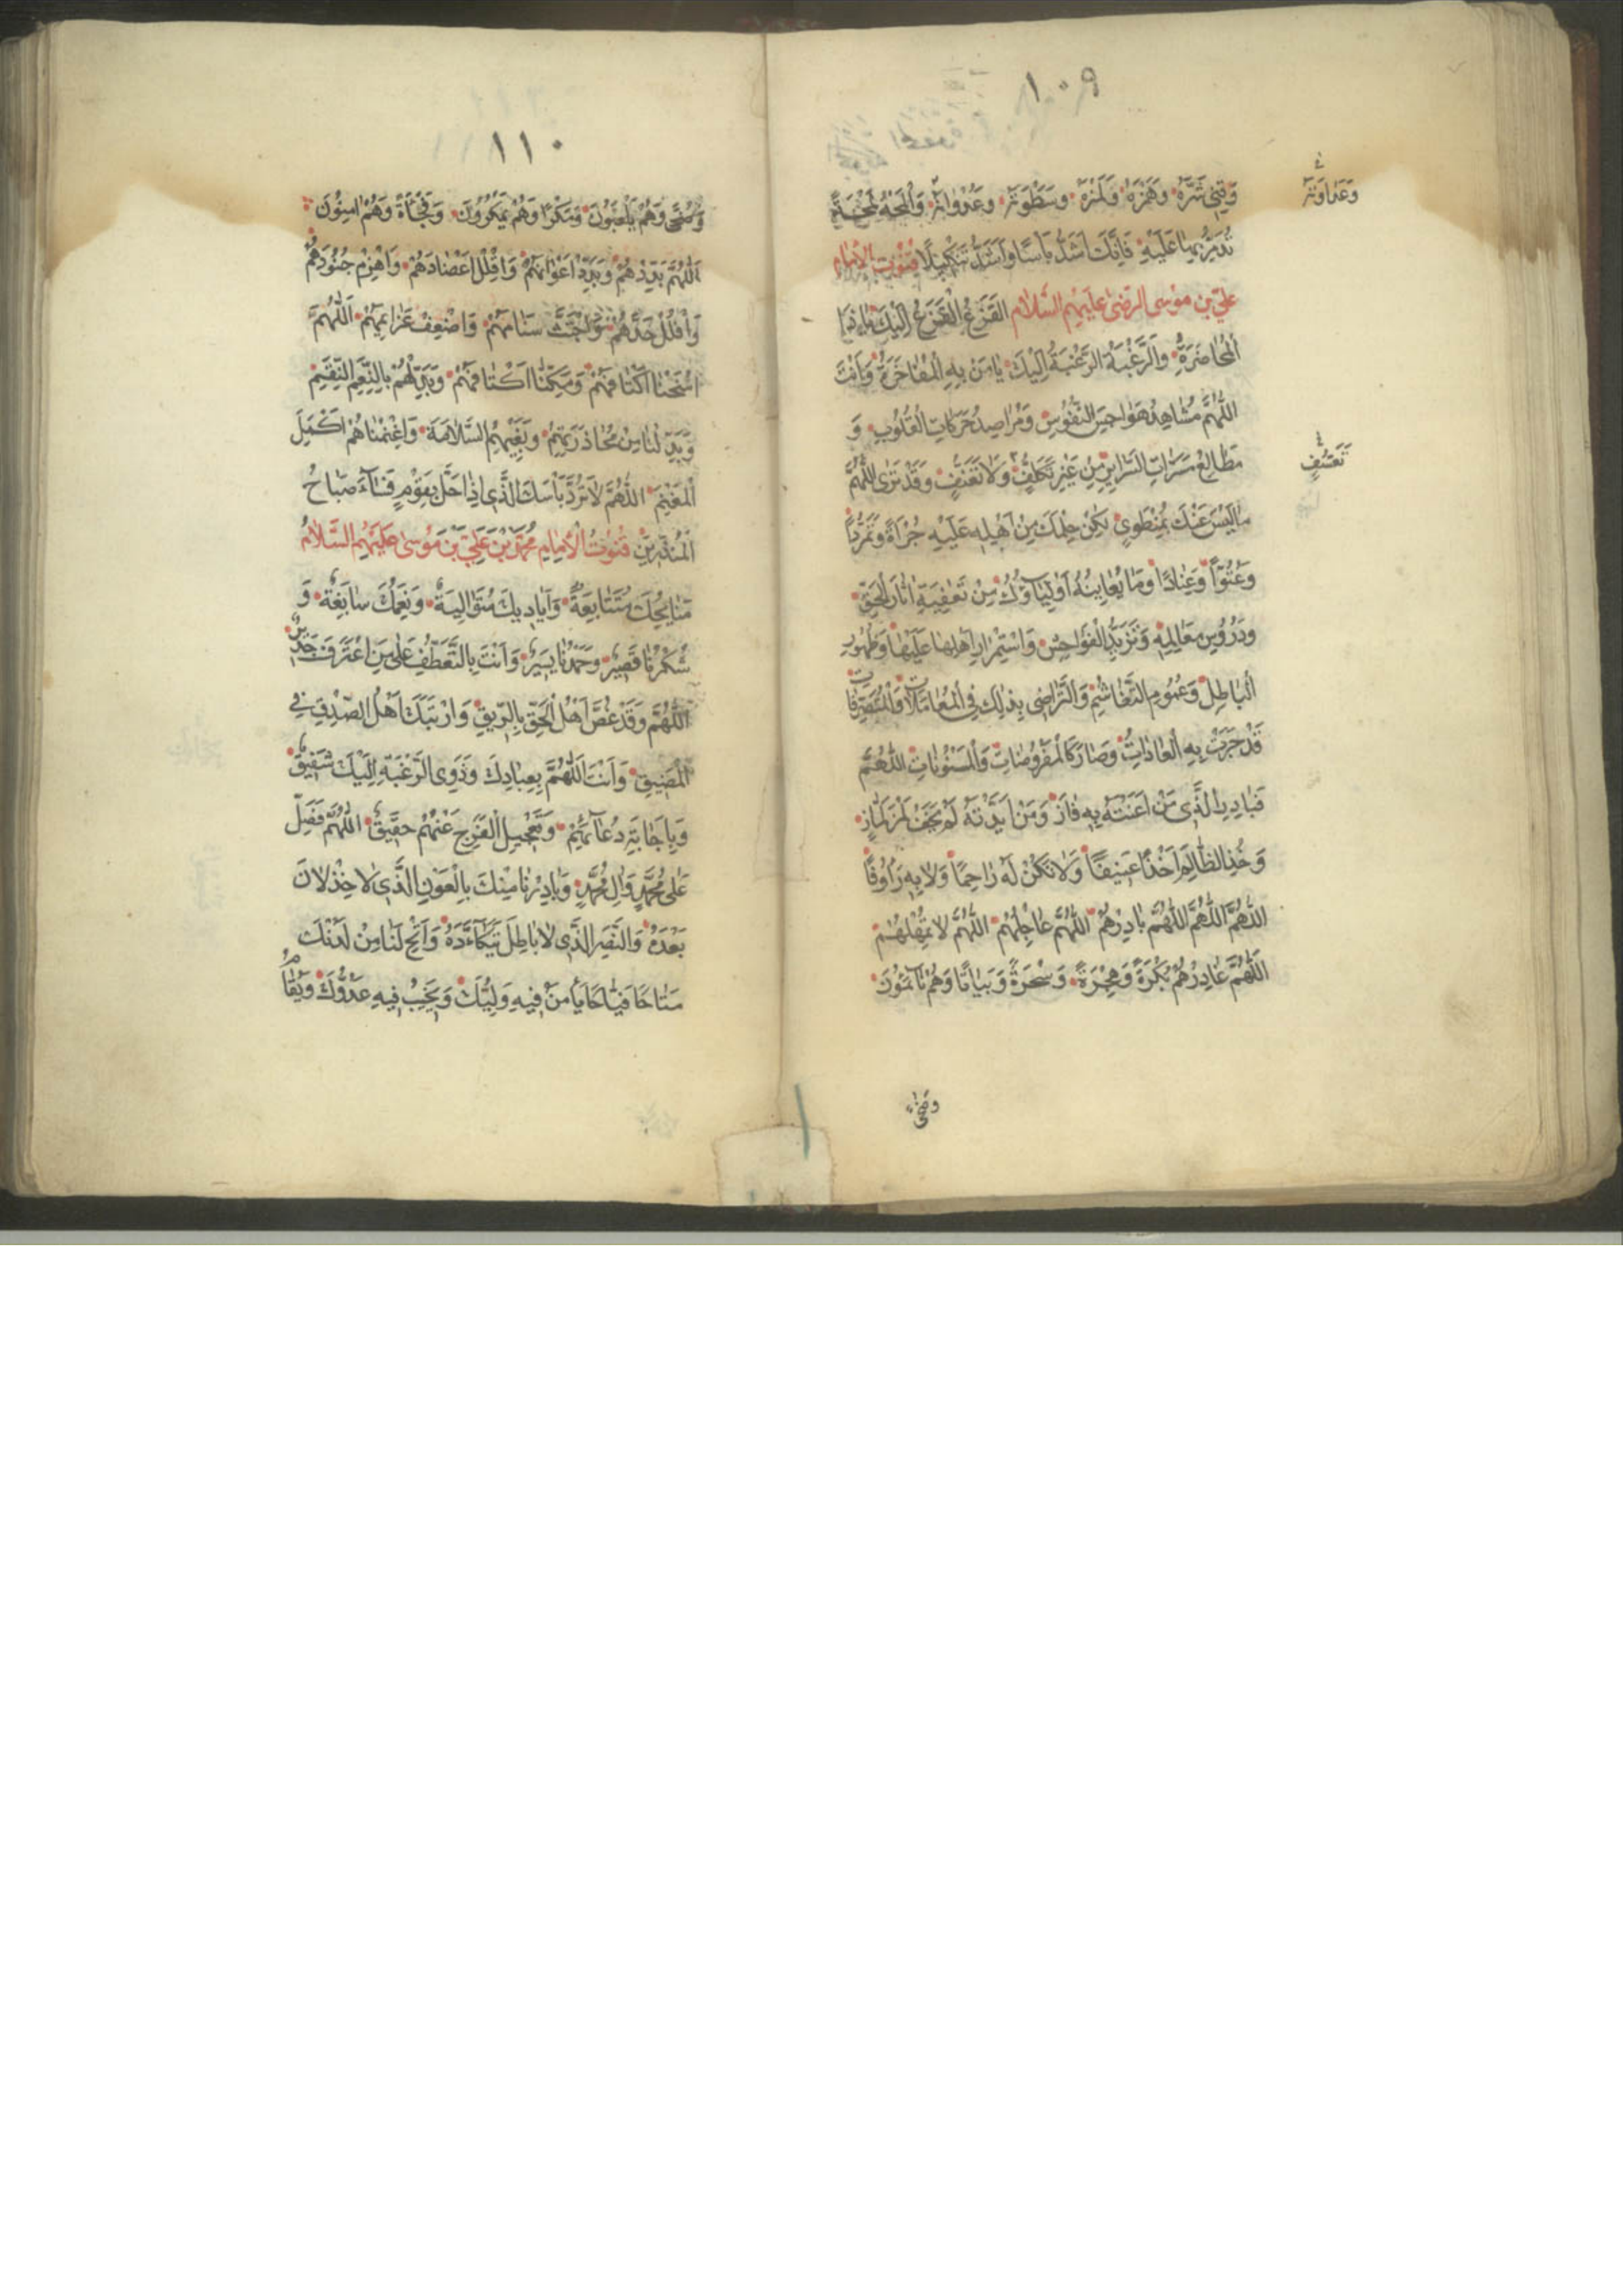 ١٠٩
وَقِنِي شَرَّهُ وَهَمْزَهُ وَلَمْزَهُ وَسَطْوَتَهُ وَعُدْوَانَهُ وَالْمَحْهُ لَمْحَةً
وَعَدَاوَتَهُ
تُدَمِّرُ بِهَا عَلَيْهِ فَاِنَّكَ اَشَدُّ بَاْسًا وَاَشَدُّ تَنْكِيلًا قنوت الإمام
علي بن موسى الرضى عليهم السلام الْفَزَعُ الْفَزَعُ اِلَيْكَ يَا ذَا
الْمُحَاضَرَةِ وَالرَّغْبَةُ الرَّغْبَةُ اِلَيْكَ يَا مَنْ بِهِ الْمُفَاخَرَةُ وَاَنْتَ
اللّٰهُمَّ مُشَاهِدُ هَوَاجِسِ النُّفُوسِ وَمُرَاصِدُ حَرَكَاتِ الْقُلُوبِ وَ
مَطَالِعُ مَسَرَّاتِ السَّرَايِرِ مِنْ غَيْرِ تَكَلُّفٍ وَلَا تَعَنُّفٍ وَقَدْ تَرَى اللّٰهُمَّ
تَعَسُّفٍ
مَا لَيْسَ عَنْكَ بِمُنْطَوِي لٰكِنَّ حِلْمَكَ مِنْ اَهْلِهِ عَلَيْهِ جُرْاَةً وَتَمَرُّدًا
وَعُتُوًّا وَعِنَادًا وَمَا يُعَايِنُهُ اَوْلِيَاؤُكَ مِنْ تَعْفِيَةِ اٰثَارِ الْحَقِّ
وَدُرُوسِ مَعَالِمِهِ وَتَزَيُّدِ الْفَوَاحِشِ وَاسْتِمْرَارِ اَهْلِهَا عَلَيْهَا وَظُهُورِ
الْبَاطِلِ وَعُمُومِ التَّغَاشُمِ وَالتَّرَاضِي بِذٰلِكَ فِي الْمُعَامَلَاتِ وَالْمُتَصَرَّفَاتِ
قَدْ جَرَتْ بِهِ الْعَادَاتُ وَصَارَ كَالْمَفْرُوضَاتِ وَالْمَسْنُونَاتِ اللّٰهُمَّ
فَبَادِرِ الَّذِي مَنْ اَعَنْتَهُ بِهِ فَازَ وَمَنْ اَيَّدْتَهُ لَمْ يَخَفْ لَمْزَ لَمَّازٍ
وَخُذِ الظَّالِمَ اَخْذًا عَنِيفًا وَلَا تَكُنْ لَهُ رَاحِمًا وَلَا بِهِ رَاُوفًا
اللّٰهُمَّ اللّٰهُمَّ اللّٰهُمَّ بَادِرْهُمْ اللّٰهُمَّ عَاجِلْهُمْ اللّٰهُمَّ لَا تُمْهِلْهُمْ
اللّٰهُمَّ غَادِرْهُمْ بُكْرَةً وَهَجِيرَةً وَسُحْرَةً وَبَيَاتًا وَهُمْ نَآئِمُونَ
وضحى
١١٠
وَضُحًى وَهُمْ يَلْعَبُونَ وَمَكْرًا وَهُمْ يَمْكُرُونَ وَفُجْاَةً وَهُمْ اٰمِنُونَ
اَللّٰهُمَّ بَدِّدْهُمْ وَبَدِّدْ اَعْوَانَهُمْ وَاقْلُلْ اَعْضَادَهُمْ وَاهْزِمْ جُنُودَهُمْ
وَافْلُلْ حَدَّهُمْ وَاجْتَثَّ سَنَامَهُمْ وَاَضْعِفْ عَزَايِمَهُمْ اَللّٰهُمَّ
امْنَحْنَا اَكْتَافَهُمْ وَمَكِّنَّا اَكْتَافَهُمْ وَبَدِّلْهُمْ بِالنِّعَمِ النِّقَمِ
وَبَدِّلْنَا مِنْ مُحَاذَرَتِهِمْ وَبَغْيِهِمُ السَّلَامَةَ وَاغْنِمْنَاهُمْ اَكْمَلَ
الْمَغْنَمِ اللّٰهُمَّ لَا تَرُدَّ بَاْسَكَ الَّذِي اِذَا حَلَّ بِقَوْمٍ فَسَآءَ صَبَاحُ
الْمُنْذَرِينَ قُنُوتُ الْاِمَامِ مُحَمَّدِ بْنِ عَلِيِّ بْنِ مُوسٰى عَلَيْهِمُ السَّلَامُ
مَنَايِحُكَ مُتَتَابِعَةٌ وَاَيَادِيكَ مُتَوَالِيَةٌ وَنِعَمُكَ سَابِغَةٌ وَ
شُكْرُنَا قَصِيرٌ وَحَمْدُنَا يَسِيرٌ وَاَنْتَ بِالتَّعَطُّفِ عَلٰى مَنِ اعْتَرَفَ جَدِيرٌ
اَللّٰهُمَّ وَقَدْ غُصَّ اَهْلُ الْحَقِّ بِالرِّيقِ وَارْتَبَكَ اَهْلُ الصِّدْقِ فِي
الْمَضِيقِ وَاَنْتَ اَللّٰهُمَّ بِعِبَادِكَ وَذَوِي الرَّغْبَةِ اِلَيْكَ شَفِيقٌ
وَبِاِجَابَةِ دُعَآئِهِمْ وَتَعْجِيلِ الْفَرَجِ عَنْهُمْ حَقِيقٌ اللّٰهُمَّ فَصَلِّ
عَلٰى مُحَمَّدٍ وَاٰلِ مُحَمَّدٍ وَبَادِرْنَا مِنْكَ بِالْعَوْنِ الَّذِي لَا خِذْلَانَ
بَعْدَهُ وَالنَّصْرِ الَّذِي لَا بَاطِلَ يَتَكَاَّدُهُ وَاَتِحْ لَنَا مِنْ لَدُنْكَ
مَتَاحًا فَيَّاحًا يَاْمَنُ فِيهِ وَلِيُّكَ وَيَخِيبُ فِيهِ عَدُوُّكَ وَيُقَامُ